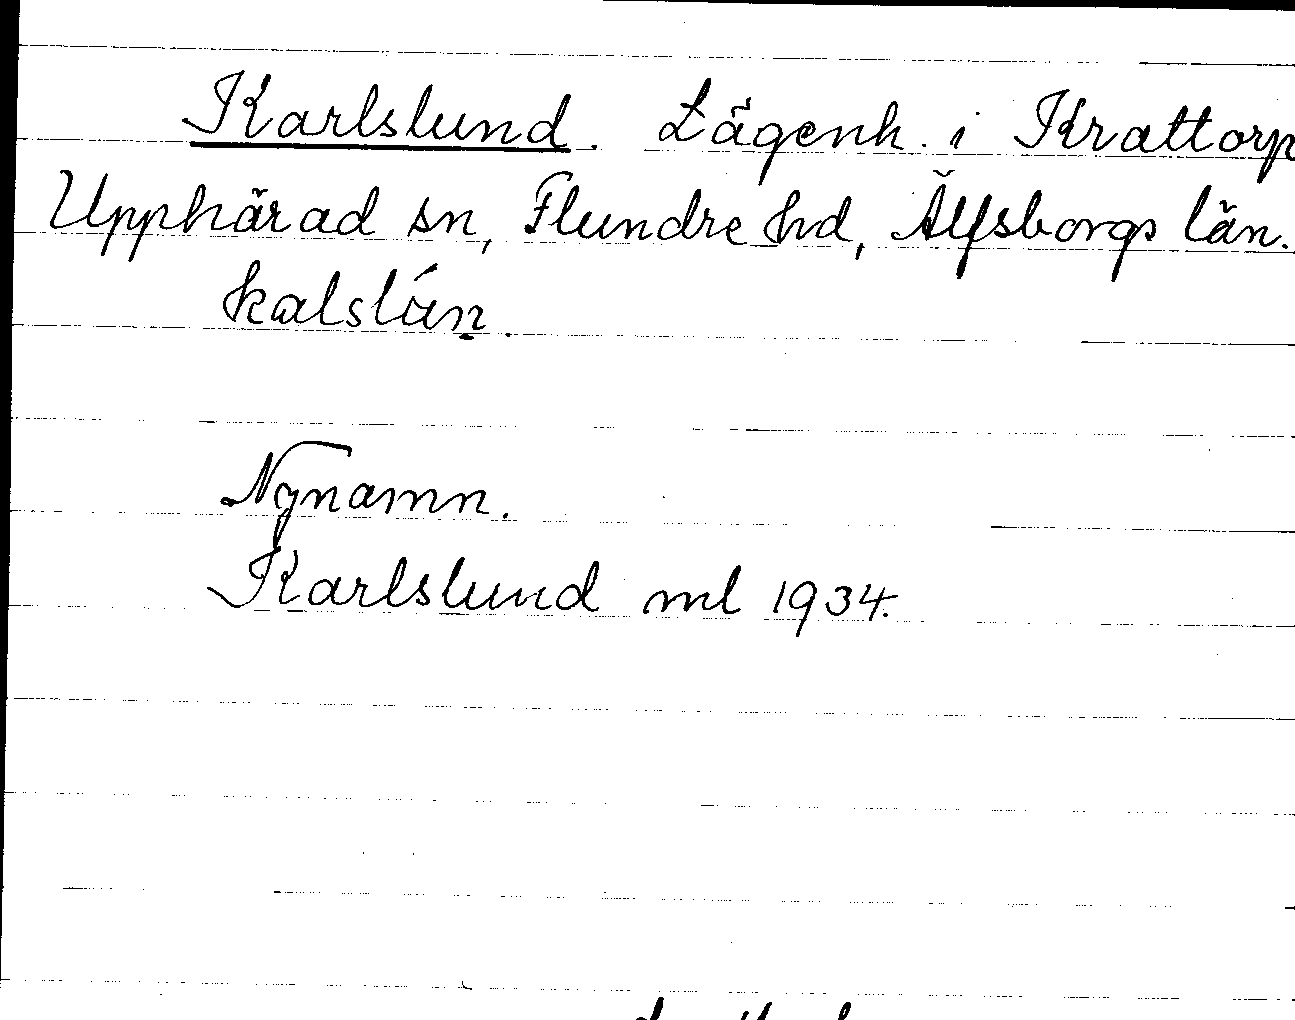 Karlslund. Lägenh. i Krattorp
Upphärad sn, Flundre hd, Älfsborgs län.
kalslán.
Nynamn.
Karlslund ml 1934.